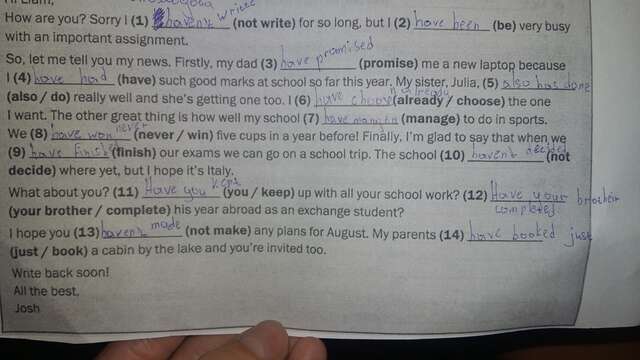 Hi Liam,
How are you? Sorry I (1) havent write (not write) for so long, but I (2) have been (be) very busy
with an important assignment.
So, let me tell you my news. Firstly, my dad (3) have promised (promise) me a new laptop because
I (4) have had (have) such good marks at school so far this year. My sister, Julia, (5) also has done
(also / do) really well and she's getting one too. I (6) have choose already (already / choose) the one
I want. The other great thing is how well my school (7) have (manage) to do in sports.
We (8) have won never (never / win) five cups in a year before! Finally, I'm glad to say that when we
(9) have finish (finish) our exams we can go on a school trip. The school (10) havent decided (not
decide) where yet, but I hope it's Italy.
What about you? (11) Have you kept (you / keep) up with all your school work? (12) Have your brother
completed
(your brother / complete) his year abroad as an exchange student?
I hope you (13) havent made (not make) any plans for August. My parents (14) have booked just
(just / book) a cabin by the lake and you're invited too.
Write back soon!
All the best,
Josh